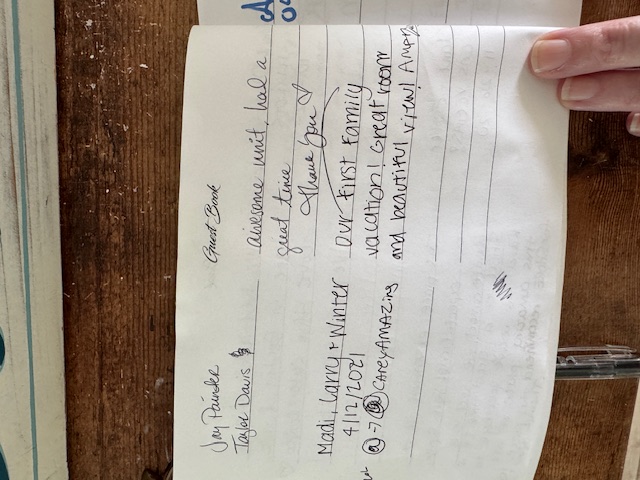 Guest Book
Jay Painder
Taylor Davis
awesome unit, had a
great time
thank you
Madi, Larry + Winter
4/12/2021
our first family
vacation! Great room
and beautiful view!
@CAREYAMAZing